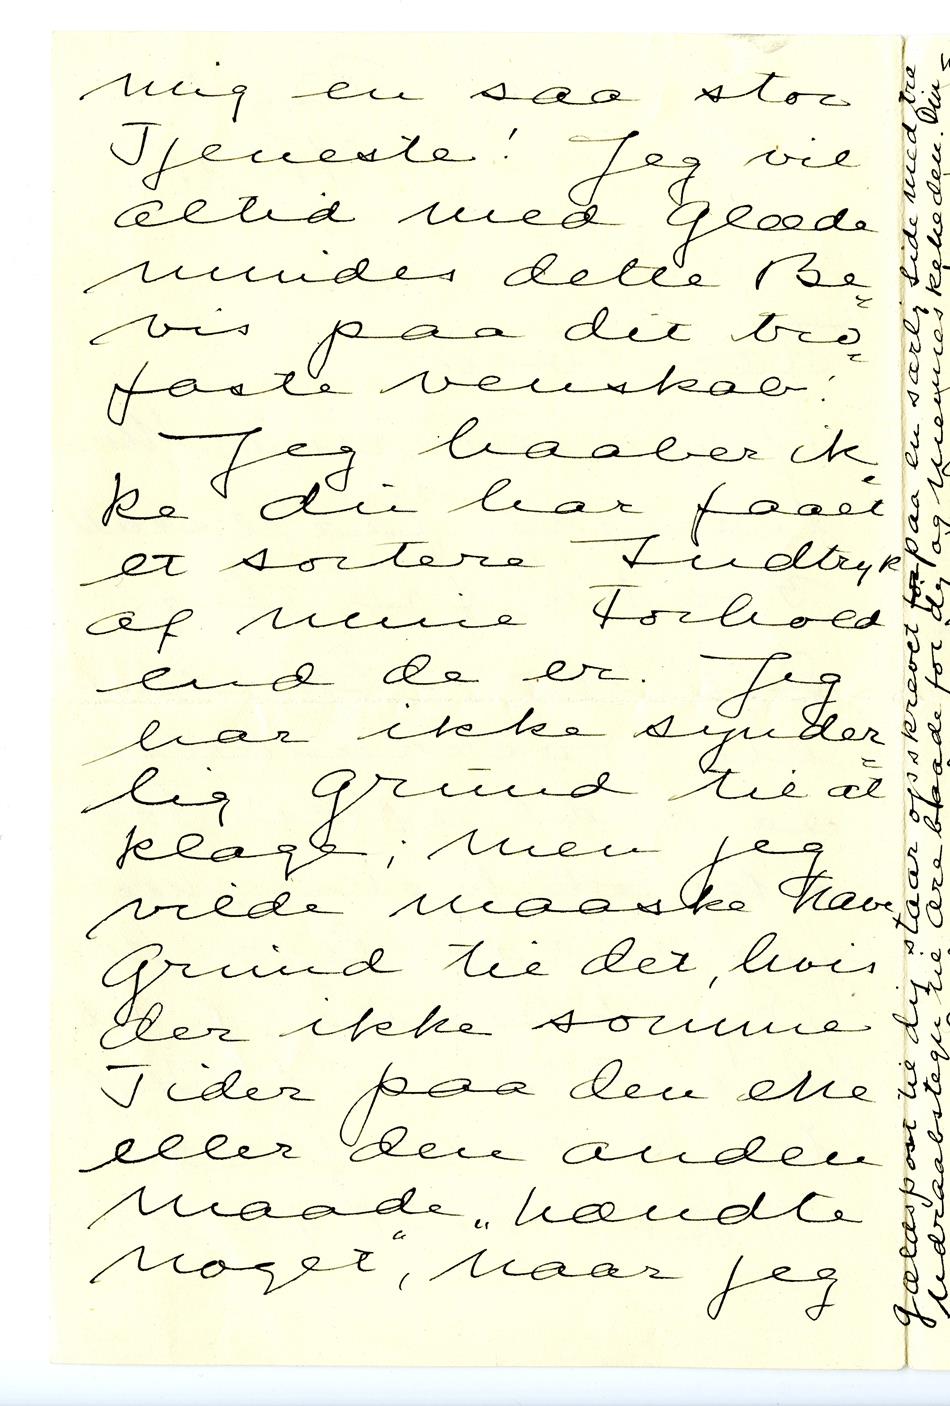 mig en saa stor
Tjeneste! Jeg vil
altid med Glæde
mindes dette Be-
vis paa dit tro-
faste Venskab!
Jeg haaber ik-
ke du har faaet
et sortere Indtryk
af mine Forhold
end de er. Jeg
har ikke synder-
lig Grund til at
klage; men jeg
vilde maaske have
Grund til det, hvis
der ikke somme
Tider paa den ene
eller den anden
Maade „hændte
noget“, naar jeg
Gældspost til dig staar opskrevet for paa en særlig Side med tre
Udraabstegn til Ære baade for dig og Menneskeheden. Din